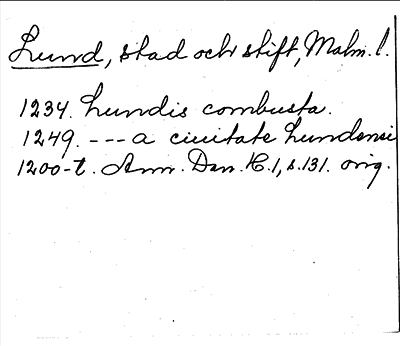 Lund, stad och stift, Malm. l.
1234. Lundis combusta.
1249. --- a ciuitate Lundensi
1200-t. Ann. Dan. H. 1, s. 131. orig.